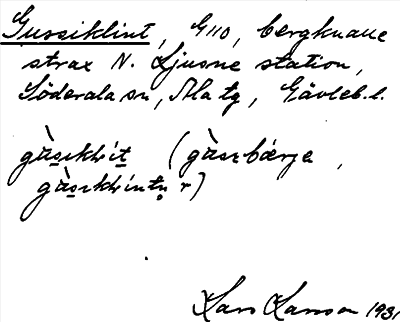 Gussiklint, G110, bergknalle
strax N. Ljusne station,
Söderala sn, Ala tg, Gävleb. l.
gàsıklıt (gàsıbærje,
r)
Lars Larsson 1931